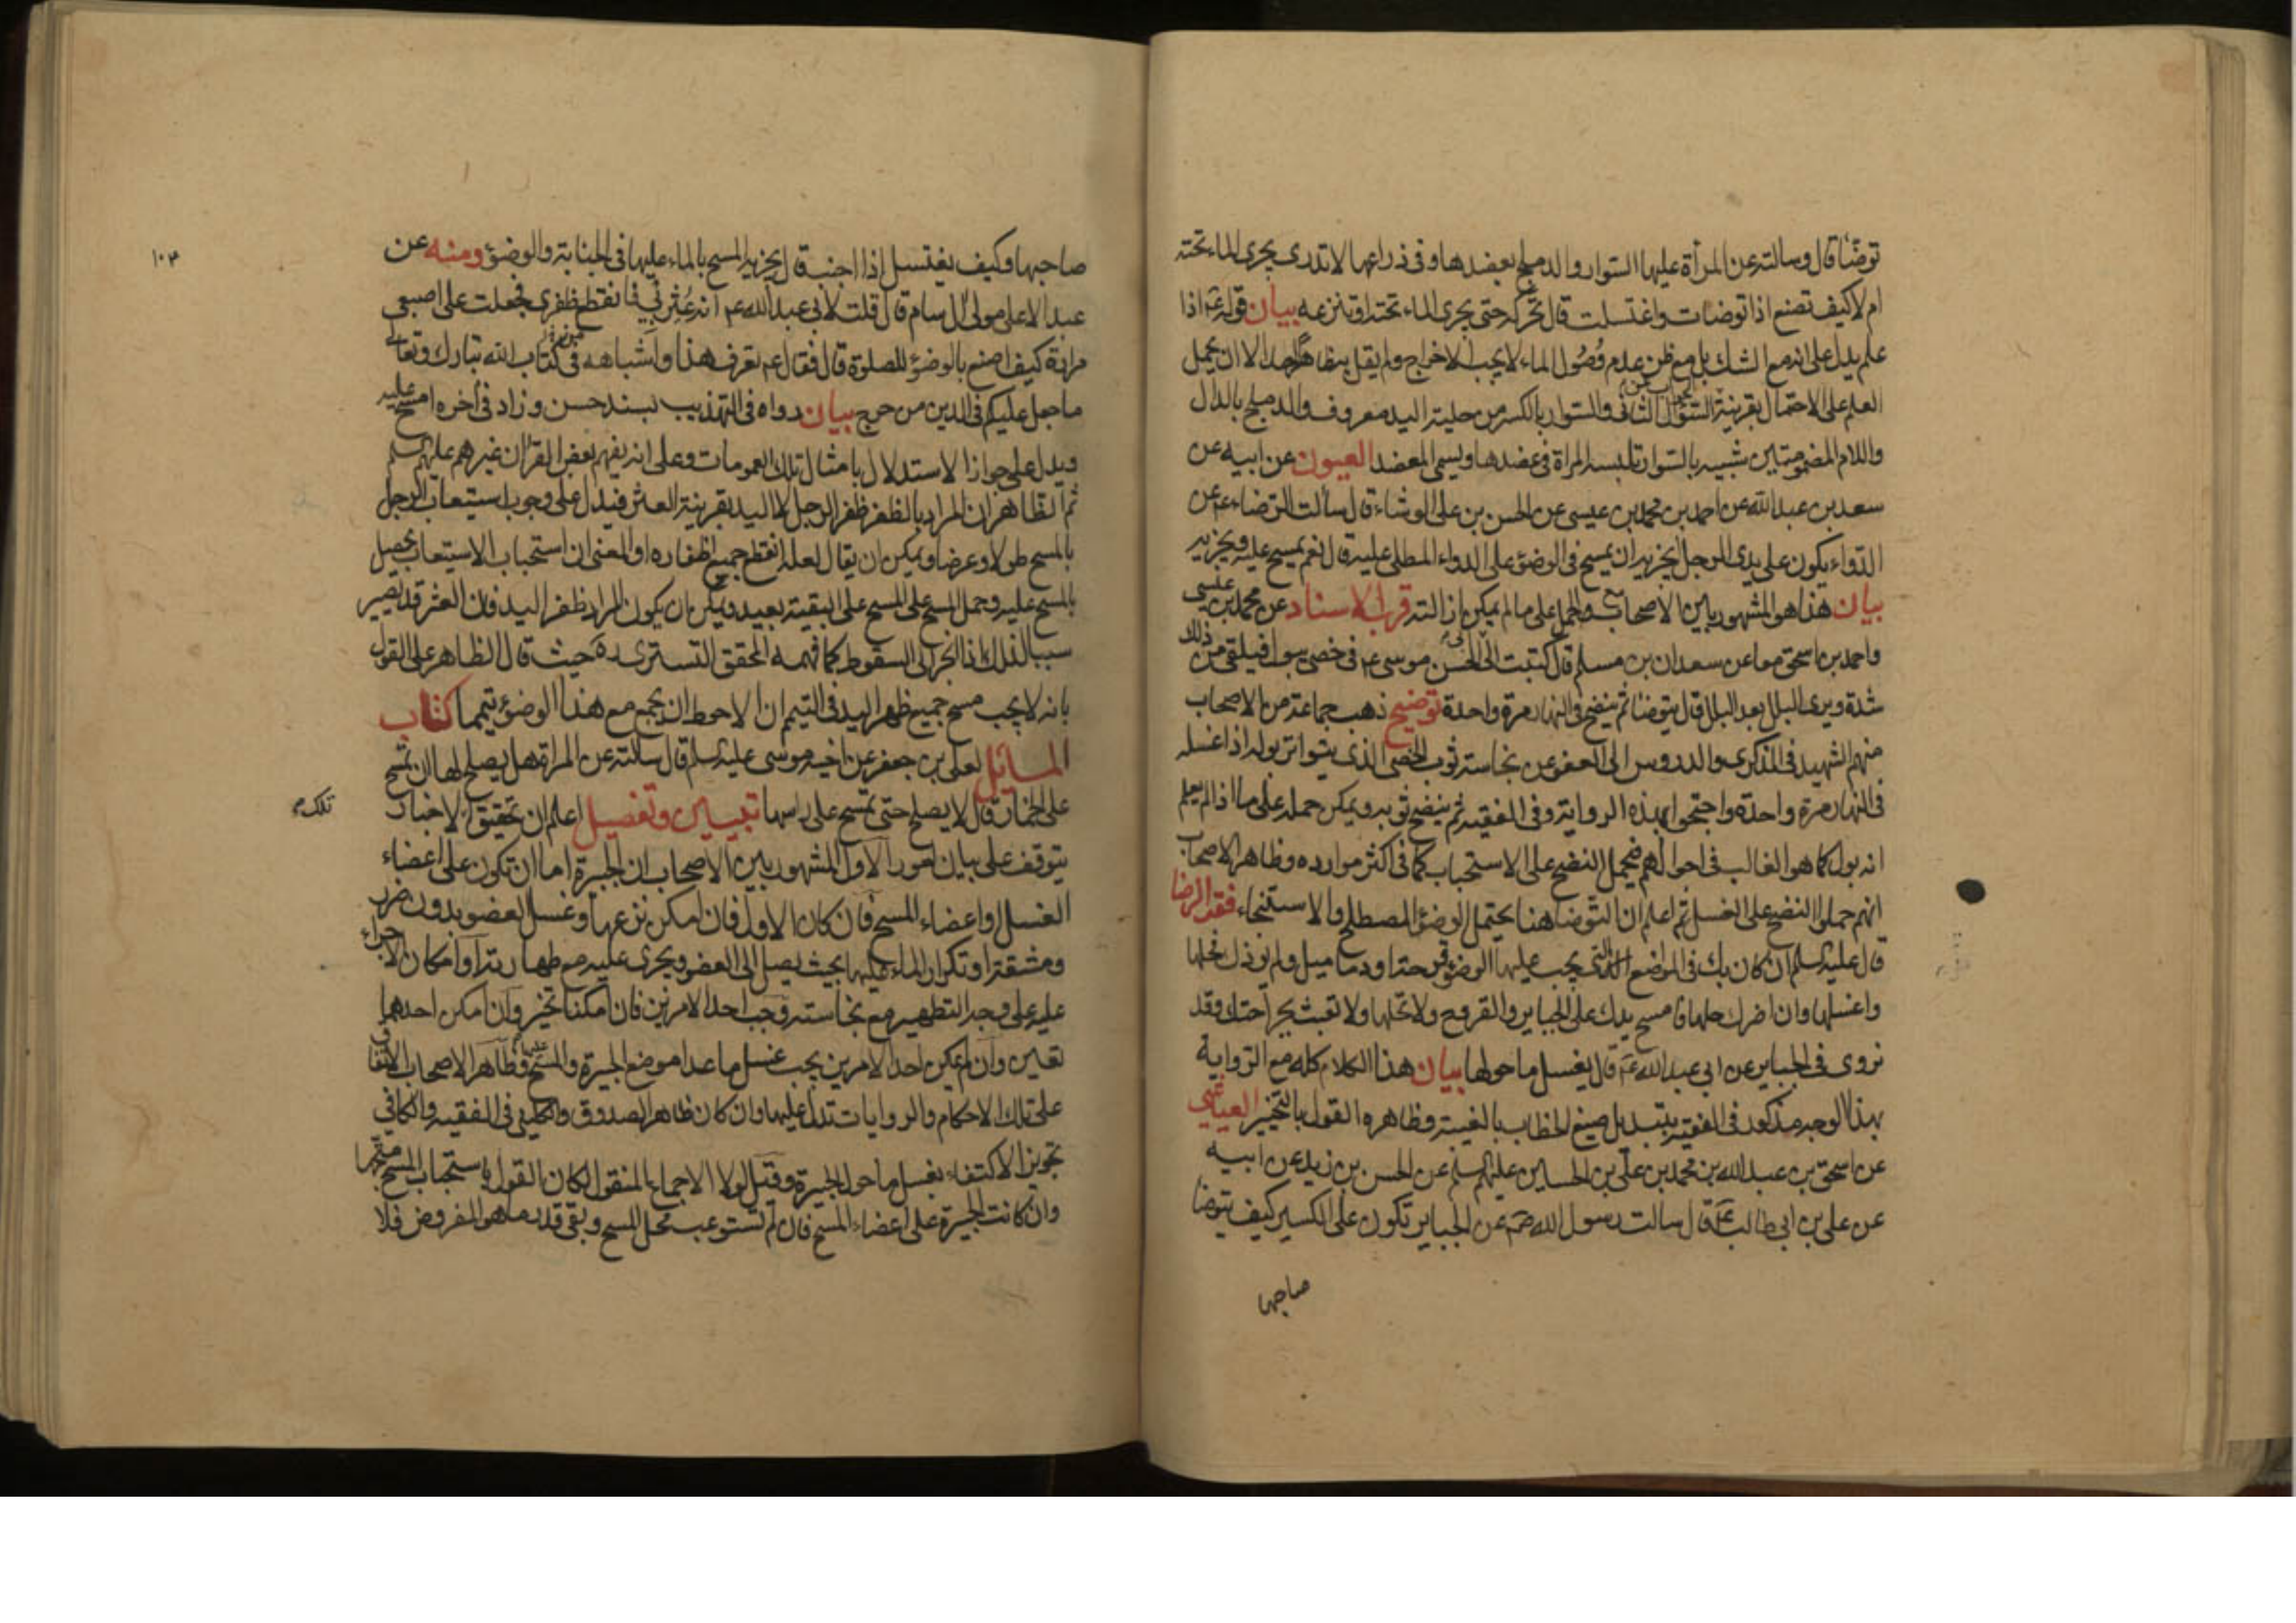 توضّأ قال وسالته عن المرأة عليها السّوار والدملج بعضدها وفى ذراعها لا تدرى يجرى الماء تحته
ام لا كيف تصنع اذا توضات واغتسلت قال تحركه حتى يجرى الماء تحته او تنزعه بيان قوله ع اذا
علم يدل على انه مع الشك بل مع ظن عدم وُصُول الماء لا يجب الاخراج ولم يقل به ظاهرًا احد الا ان يحمل
العلم على الاحتمال بقرينة السّؤال الثانى والسّوار بالكسر من حلية اليد معروف والدملج بالدال
واللام المضمومتين شبيه بالسّوار تلبسه المراة فى عضدها ويسمى المعضد العيون عن ابيه عن
سعد بن عبد الله عن احمد بن محمد بن عيسى عن الحسن بن على الوشاء قال سألت الرّضاء ع عن
الدّواء يكون على يدى الرجل ايجزيه ان يمسح فى الوضوء على الدواء المطلى عليه قال نعم يمسح عليه ويجزيه
بيان هذا هو المشهور بين الاصحاب والحمل على ما لم يمكن ازالته قرب الاسناد عن محمد بن عيسى
واحمد بن اسحق معا عن سعدان بن مسلم قال كتبت الى ابى الحسن موسى ع فى خصى يبول فيلقى من ذلك
شدة ويرى البلل بعد البلل قال يتوضأ ثم ينضح فى النهار مرة واحدة توضيح ذهب جماعة من الاصحاب
منهم الشهيد فى الذكرى والدروس الى العفو عن نجاسة ثوب الخصى الذى يتواتر بوله اذا غسله
فى النهار مرة واحدة واحتجوا بهذه الرواية وفى الفقيه ثم ينضح ثوبه ويمكن حمله على ما اذا لم يعلم
انه بول كما هو الغالب فى احوالهم فيحمل النضح على الاستحباب كما فى اكثر موارده وظاهر الاصحاب
انهم حملوا النضح على الغسل ثم اعلم ان التوضا هنا يحتمل الوضوء المصطلح والاستنجاء فقه الرضا
قال عليه السلم ان كان بك فى المواضع التى يجب عليها الوضوء قرحة او دماميل ولم يؤذك فحلها
واغسلها وان اضرك حلها فامسح يدك على الجباير والقروح ولا تحلها ولا تعبث بجراحتك وقد
نروى فى الجباير عن ابى عبد الله ع قال يغسل ما حولها بيان هذا الكلام كله مع الرّواية
بهذا الوجه مذكور فى الفقيه بتبديل صيغ الخطاب بالغيبة وظاهره القول بالتخيير العياشى
عن اسحق بن عبد الله بن محمد بن على بن الحسين عليهم السلم عن الحسن بن زيد عن ابيه
عن على بن ابى طالب ع قال سالت رسول الله ص عن الجباير تكون على الكسير كيف يتوضا
صاحبها
١٠٣
صاحبها وكيف يغتسل اذا اجنب قال يجزيه المسح بالماء عليها فى الجنابة والوضوء ومنه عن
عبد الاعلى مولى ال سام قال قلت لابى عبد الله ع انه عُثِرَ بى فانقطع ظفرى فجعلت على اصبعى
مرارة كيف اصنع بالوضوء للصلوة قال فقال ع تعرف هذا واشباهه فى كتاب الله تبارك وتعالى
ما جعل عليكم فى الدين من حرج بيان رواه فى التهذيب بسند حسن وزاد فى آخره امسح عليه
ويدل على جواز الاستدلال بامثال تلك العمومات وعلى انه يفهم بعض القرآن غيرهم عليهم السلم
ثم الظاهر ان المراد بالظفر ظفر الرجل لا اليد بقرينة العثر فيدل على وجوب استيعاب الرجل
بالمسح طولا وعرضا ويمكن ان يقال لعله انقطع جميع اظفاره او المعنى ان استحباب الاستيعاب يحصل
بالمسح عليه وحمل المسح على المسح على البقية بعيد ويمكن ان يكون المراد ظفر اليد فان العثر قد يصير
سببا لذلك اذا انجر الى السقوط كما فهمه المحقق التسترى ره حيث قال الظاهر على القول
بانه لا يجب مسح جميع ظهر اليد فى التيمم ان الاحوط ان يجمع مع هذا الوضوء تيمما كتاب
المسايل لعلى بن جعفر عن اخيه موسى عليه السلم قال سالته عن المراة هل يصلح لها ان تمسح
على الخمار قال لا يصلح حتى تمسح على راسها تبيين وتفصيل اعلم ان تحقيق الاخبار
تلك
يتوقف على بيان امور الاول المشهور بين الاصحاب ان الجبيرة اما ان تكون على اعضاء
الغسل او اعضاء المسح فان كان الاول فان امكن نزعها وغسل العضو بدون ضرر
ومشقة او تكرار الماء عليها بحيث يصل الى العضو ويجرى عليه مع طهارته او امكان الاجراء
عليه على وجه التطهير مع نجاسته وجب احد الامرين فان امكنا تخير وان امكن احدهما
تعين وان لم يمكن احد الامرين يجب غسل ما عدا موضع الجبيرة والمسح عليها وظاهر الاصحاب الاتفاق
على تلك الاحكام والروايات تدل عليها وان كان ظاهر الصدوق والكلينى فى الفقيه والكافى
تجويز الاكتفاء بغسل ما حول الجبيرة وقيل لولا الاجماع المنقول لكان القول باستحباب المسح متجها
وان كانت الجبيرة على اعضاء المسح فان لم تستوعب محل المسح وبقى قدر ما هو المفروض فلا